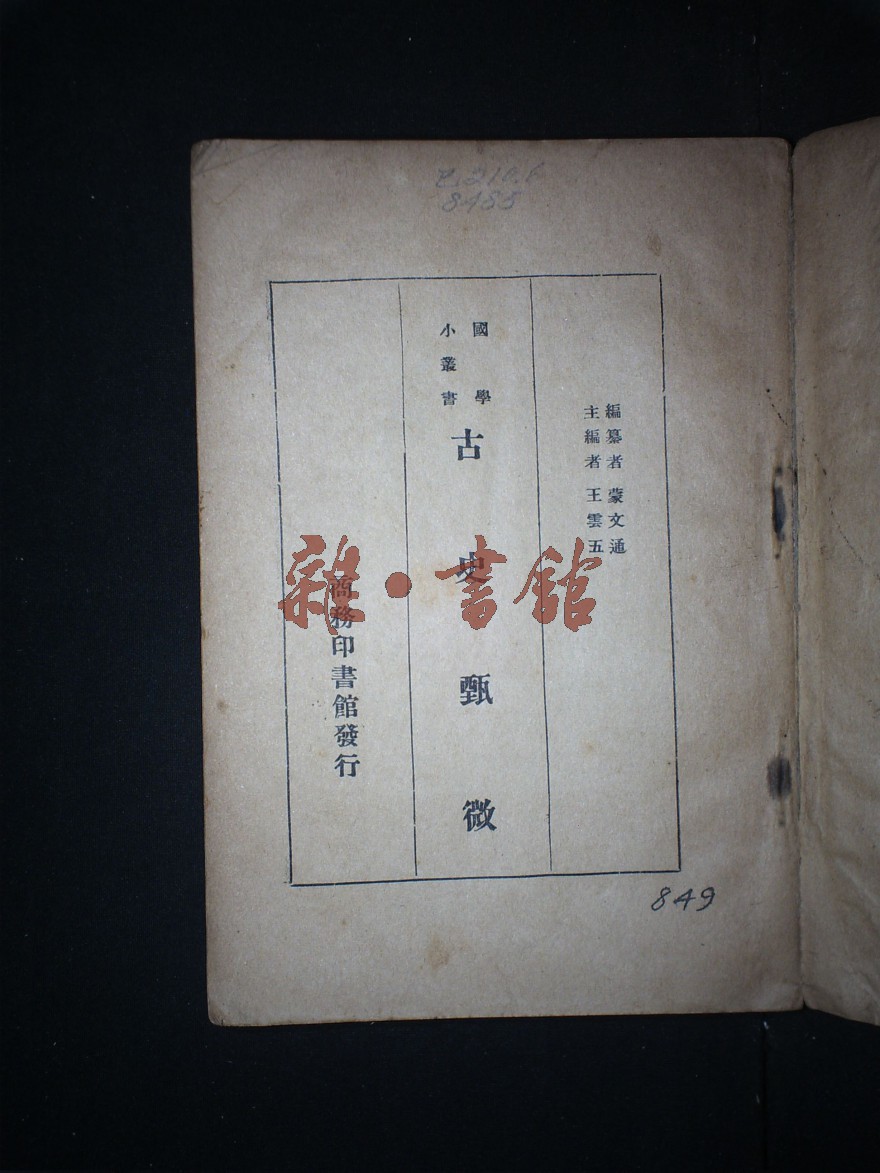 8485
編纂者 蒙文通
主編者 王雲五
國學
小叢書
古史甄微
商務印書館發行
雜·書館
849